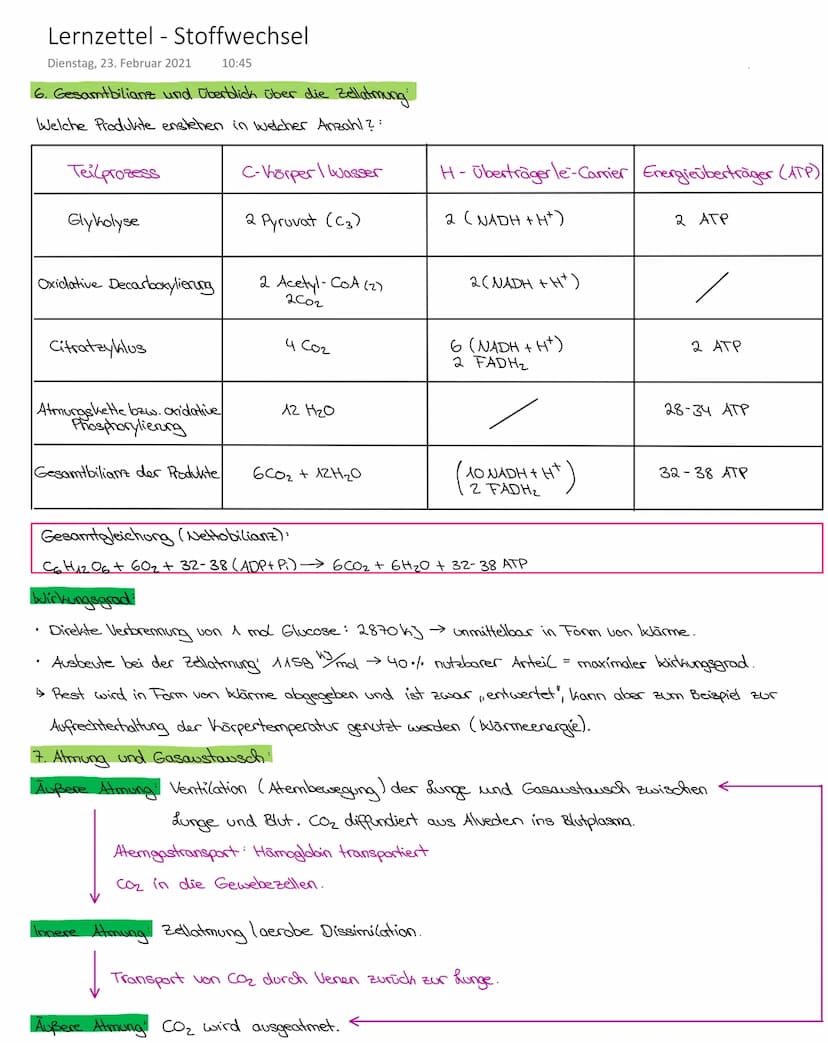 Lernzettel - Stoffwechsel
Dienstag, 23. Februar 2021 10:45
6. Gesamtbilianz und Überblick über die Zellatmung:
Welche Produkte enstehen in welcher Anzahl?:
Teilprozess C-Körper/Wasser H-Überträger/e⁻-Carrier Energieüberträger (ATP)
Glykolyse 2 Pyruvat (C₃) 2 (NADH + H⁺) 2 ATP
Oxidative Decarboxylierung 2 Acetyl-CoA (2) 2(NADH + H⁺) /
2CO₂
Citratzyklus 4 CO₂ 6 (NADH + H⁺) 2 ATP
2 FADH₂
Atmungskette bzw. oxidative 12 H₂O / 28-34 ATP
Phosphorylierung
Gesamtbilianz der Produkte 6CO₂ + 12H₂O (10 NADH + H⁺ 32-38 ATP
2 FADH₂)
Gesamtgleichung (Nettobilianz):
C₆H₁₂O₆ + 6O₂ + 32-38 (ADP+Pᵢ) → 6CO₂ + 6H₂O + 32-38 ATP
Wirkungsgrad:
· Direkte Verbrennung von 1 mol Glucose: 2870 kJ → unmittelbar in Form von Wärme.
· Ausbeute bei der Zellatmung: 1159 kJ/mol → 40% nutzbarer Anteil = maximaler Wirkungsgrad.
↳ Rest wird in Form von Wärme abgegeben und ist zwar „entwertet", kann aber zum Beispiel zur
Aufrechterhaltung der Körpertemperatur genutzt werden (Wärmeenergie).
7. Atmung und Gasaustausch:
Äußere Atmung: Ventilation (Atembewegung) der Lunge und Gasaustausch zwischen
Lunge und Blut. CO₂ diffundiert aus Alveolen ins Blutplasma.
Atemgastransport: Hämoglobin transportiert
CO₂ in die Gewebezellen.
Innere Atmung: Zellatmung/aerobe Dissimilation.
Transport von CO₂ durch Venen zurück zur Lunge.
Äußere Atmung: CO₂ wird ausgeatmet.